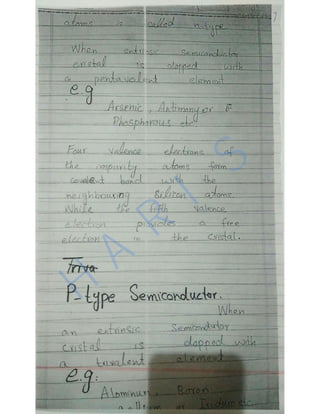 atoms is called n-type
When entrisic semiconductor
cristal is dopped with
a pentavalent element
e.g
Arsenic, Antimony or
Phosphorous etc.
Four valence electrons of
the impurity atoms form
covalent bond with the
neighbouring Silicon atoms
While the fifth valence
electron provides a free
electron in the cristal.
P-type Semiconductor.
When
an extrinsic Semicondutor
Cristal is dopped with
a trivalent element
e.g:
Aluminum, Boron
or
HARIS